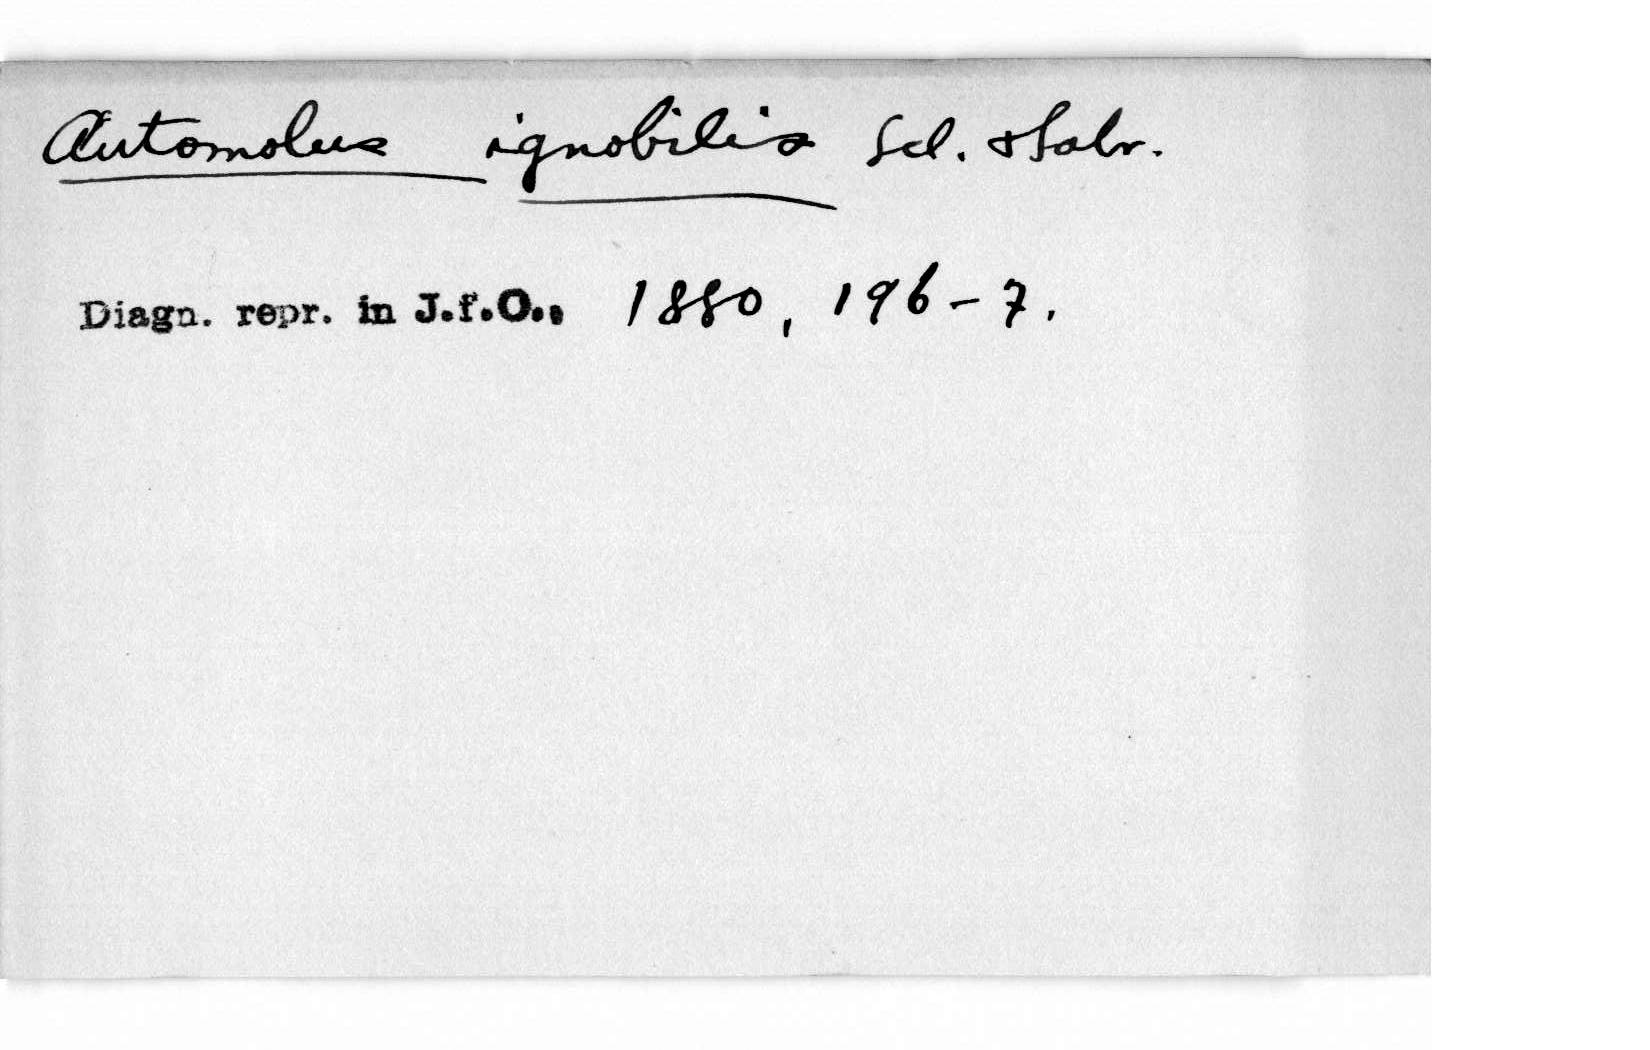 Automolus ignobilis Scl. & Salv.
Diagn. repr. in J.f.O., 1880, 196-7.